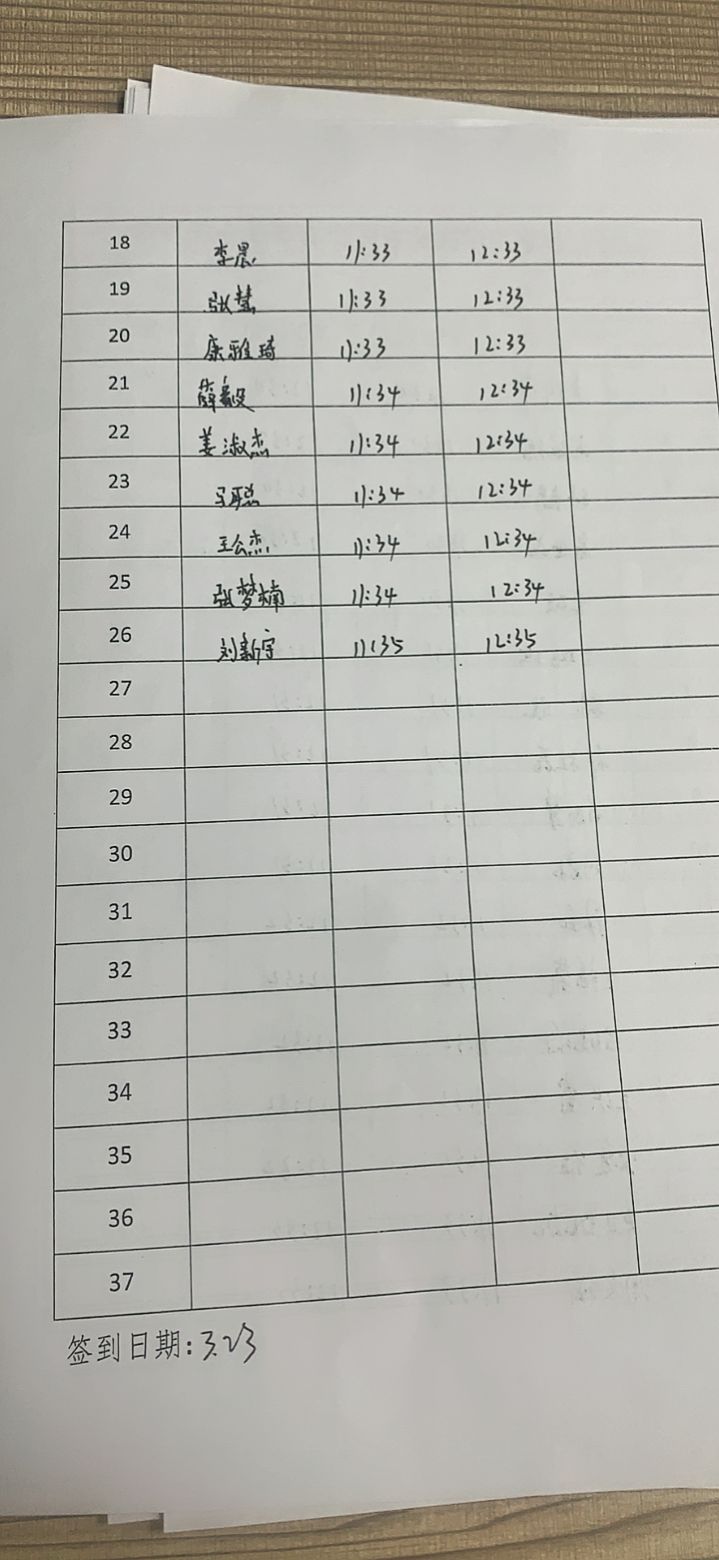 18 李晨 11:33 12:33
19 张慧 11:33 12:33
20 康雅琦 11:33 12:33
21 薛毅 11:34 12:34
22 姜淑杰 11:34 12:34
23 马聪 11:34 12:34
24 王公杰 11:34 12:34
25 张梦楠 11:34 12:34
26 刘新宇 11:35 12:35
27
28
29
30
31
32
33
34
35
36
37
签到日期:3.23